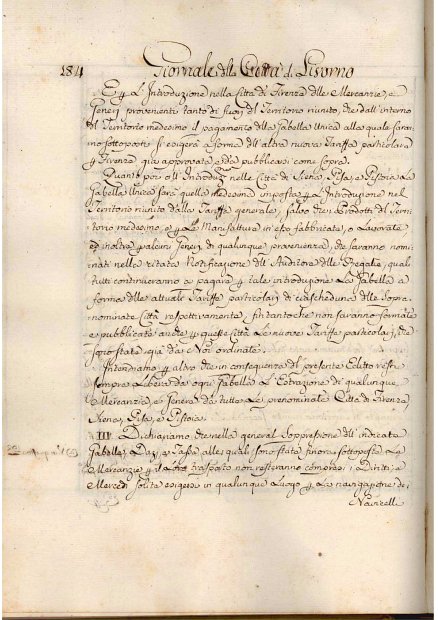 184 Giornale della Città di Livorno
E p L'Introduzione nella Città di Firenze delle Mercanzie, e
Generi provenienti tanto di fuori del Territorio riunito, che dall'interno
del Territorio medesimo il pagamento della Gabella Unica alla quale saran
no sottoposti si esigerà a forma dell'altra nuova Tariffa particolare
p Firenze, già approvata, e da pubblicarsi come sopra.
Quanto poi all'Introduz. nelle Città di Siena, Pisa, e Pistoia, La
Gabella Unica sarà quella medesima imposta p L'Introduzione nel
Territorio riunito dalla Tariffa generale, salvo che i Prodotti del Terri
torio medesimo, e p Le Manifatture in esso fabbricate, o Lavorate
ed inoltre p alcuni Generi, di qualunque provenienza, che saranno nomi
nati nella citata Notificazione dell'Auditore delle Regalie, quali
tutti continueranno a pagare p tale introduzione La Gabella a
forma delle attuali Tariffe particolari di ciascheduna delle Sopra
nominate Città respettivamente, sintantochè non saranno formate
e pubblicate anche p queste Città Le nuove Tariffe particolari, che
sono state già da Noi ordinate.
Intendiamo p altro che in conseguenza del presente Editto resti
sempre Libera da ogni Gabella L'Estrazione di qualunque
Mercanzia, e Genere da tutte Le prenominate Città di Firenze
Siena, Pisa, e Pistoia.
VIII. Dichiariamo che nella general Soppressione dell'indicate
Gabelle, Dazj, e Tasse alle quali sono state finora sottoposte Le
Mercanzie p il Loro trasporto non resteranno compresi i Diritti, e
Mercedi solite esigersi in qualunque Luogo p La navigazione dei
Navicelli